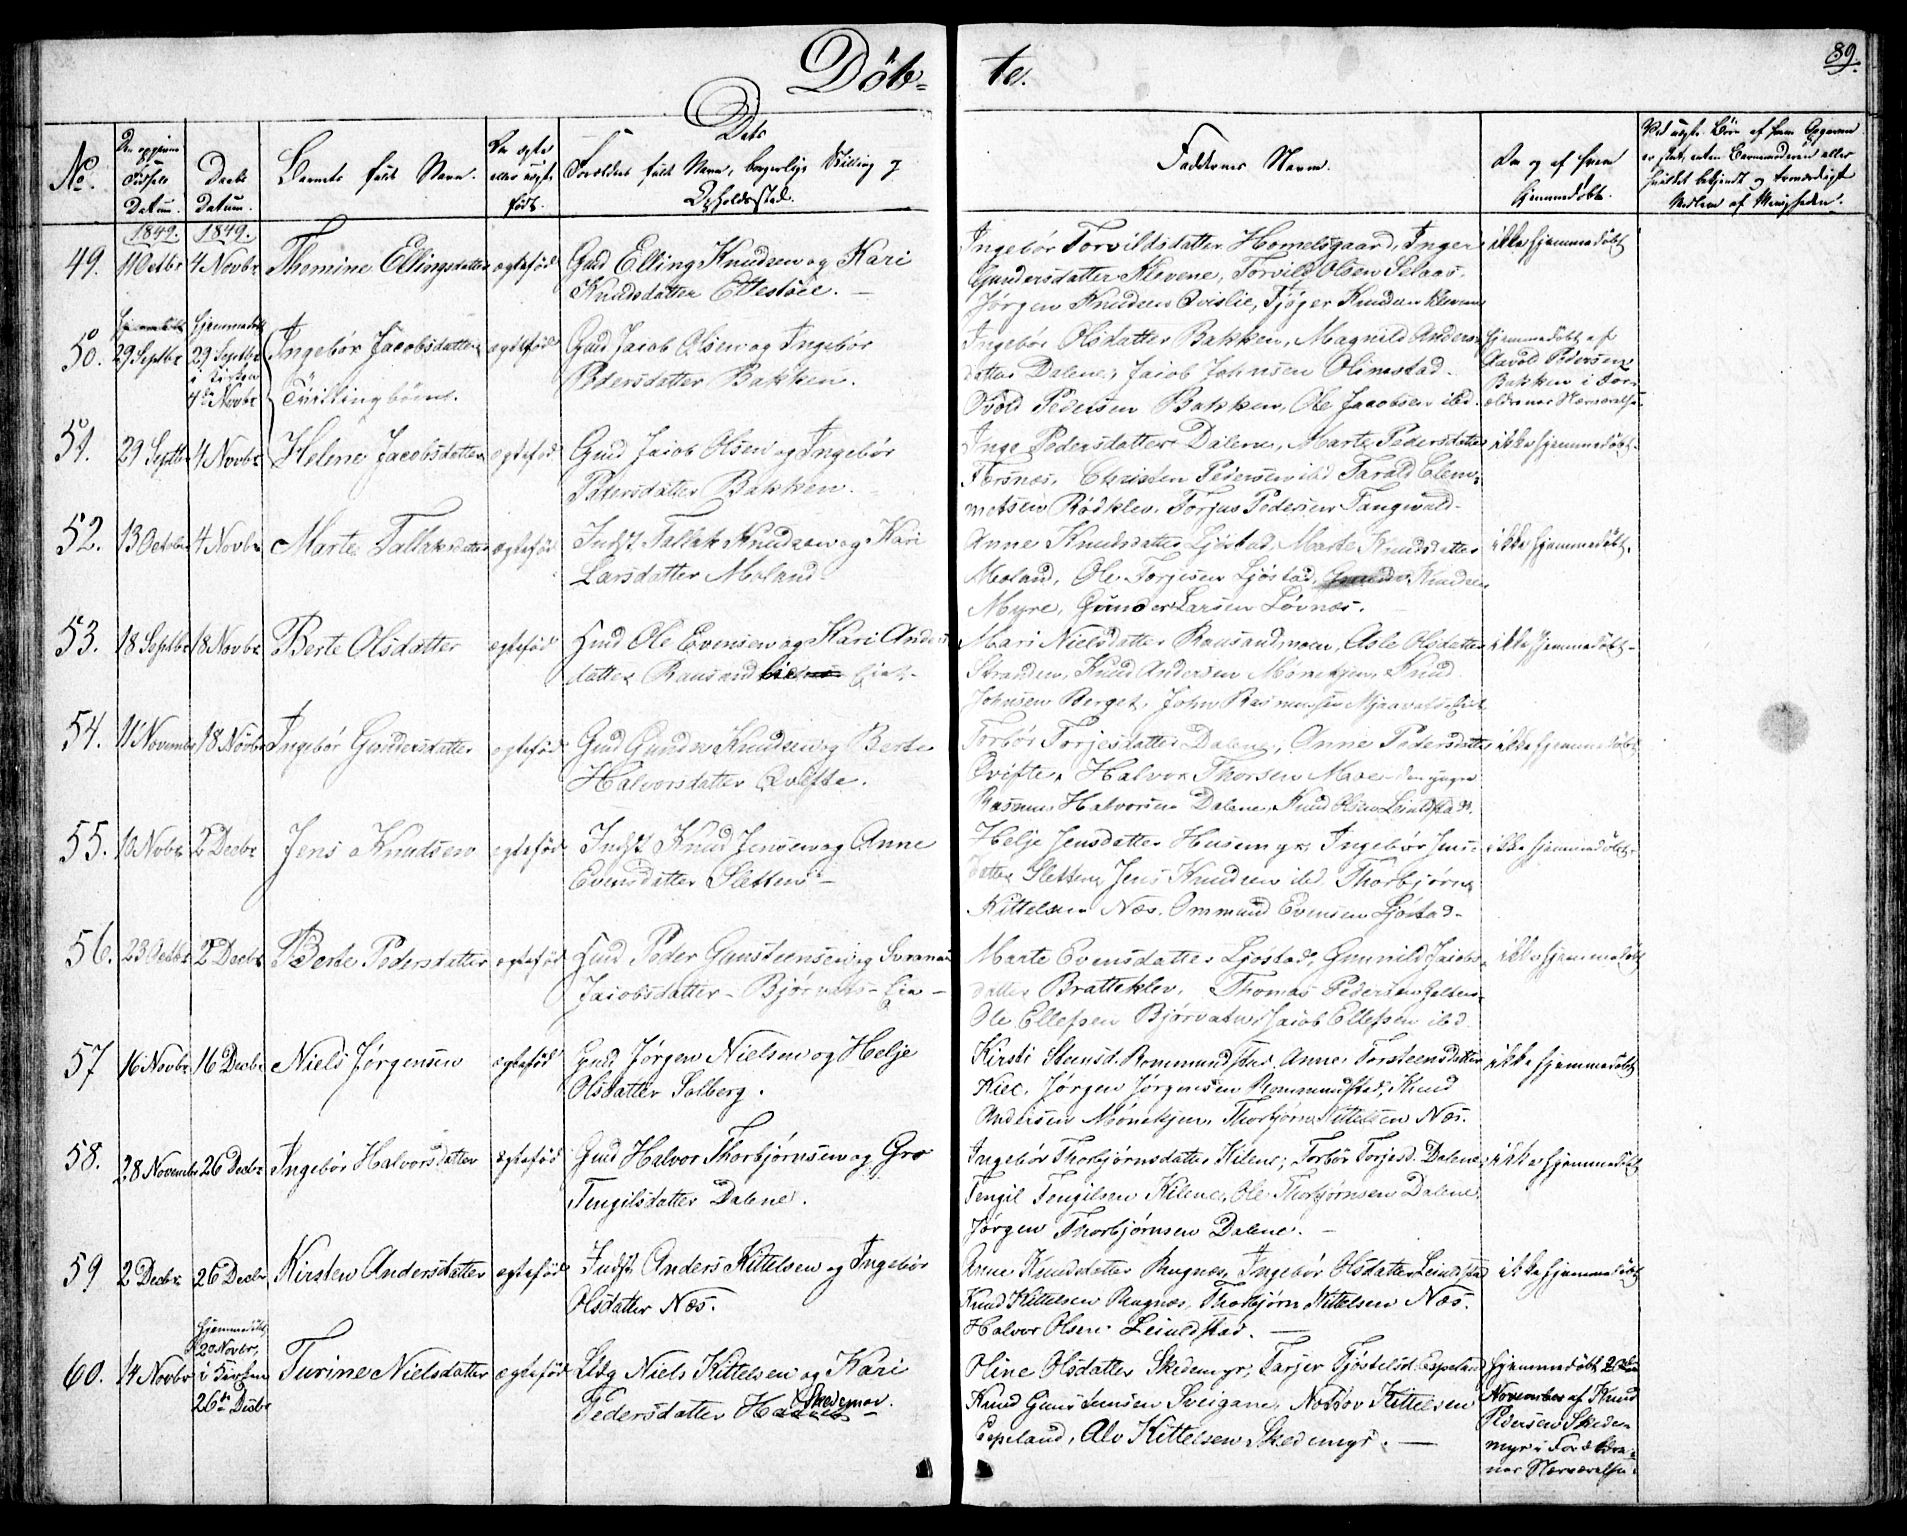 Døb- te.
89.
No.
Datum.
Daabs Datum.
Barnets fulde Navn.
født.
Dets Forældres fulde Navn, borgerlige Stilling og Opholdssted.
Faddernes Navne.
hjemmedøbt.
Medlem af Menigheden.
1849. 1849.
49. 4 Novbr Thomine Ellingsdatter ægtefød Gmd Elling Knudsen og Kari
Knudsdatter
Ingebor Torvildsdatter Homelsgaard, Inger
Gundersdatter Klevene, Torvild Olsen Selaas.
Jørgen Knudsen Qvislie, Knudsen Klevene
ikke hjemmedøbt
50. 29 Septbr hjemmedøbt 29 Septbr i Kirken 4de Novbr Ingebor Jacobsdatter ægtefød Gmd Jacob Olsen og Ingebor
Tvillingbørn. Pedersdatter Bakken.
Ingebor Olsdatter Bakken, Magnild Anders-
datter Dalene, Jacob Johnsen Olimstad.
Ovold Pedersen Bakken, Ole Jacobsen ibd.
hjemmedøbt af
Aavold Pedersen
Bakken i For-
ældrenes Nærværelse.
51. 29 Septbr 4 Novbr Helene Jacobsdatter ægtefød Gmd Jacob Olsen og Ingebor
Pedersdatter Bakken.
Inge Pedersdatter Dalene, Marte Pedersdatter
Christen Pedersen ibd Tarald Clem-
metsen Rødklev. Torjus Pedersen Tangwald.
ikke hjemmedøbt.
52. 13 Octobr 4 Novbr Marte Tallaksdatter ægtefød Indst Tallak Knudsen og Kari
Larsdatter Moland
Anne Knudsdatter Ljøstad, Marte Knudsdatter
Moland, Ole Torjesen Ljøstad, Knudsen
Myre, Gunder Larsen Løvnæs.
ikke hjemmedøbt.
53. 18 Septbr 18 Novbr Berte Olsdatter ægtefød Hmd Ole Evensen og Kari Anders
datter Rausand Eie.
Mari Nielsdatter Rausandmoen, Asle Olsdatter
Stranden, Knud Andersen Mønekjen, Knud
Johnsen Berget, John Rasmussen
ikke hjemmedøbt.
54. 11 November 18 Novbr Ingebor Gundersdatter ægtefød Gmd Gunder Knudsen og Berte
Halvorsdatter Qvifte.
Torbor Torjesdatter Dalene, Anne Pedersdatter
Qvifte, Halvor Thorsen Moe den yngre
Rasmus Halvorsen Dalene, Knud Olsen Leindstad.
ikke hjemmedøbt
55. 10 Novbr 2 Decbr Jens Knudsen ægtefød Indst Knud Jensen og Anne
Evensdatter Sletten
Helje Jensdatter Husemyr, Ingebor Jens-
datter Sletten, Jens Knudsen ibd. Thorbjørn
Kittelsen Næs. Ommund Evensen Ljøstad.
ikke hjemmedøbt.
56. 23 Octbr 2 Decbr Berte Pedersdatter ægtefød Hmd Peder Gunsteensen og
Jacobsdatter - Bjørvatns - Eie -
Marte Evensdatter Ljøstad, Gunnild Jacobs-
datter Bratteklev. Thomas Pedersen
Ole Ellefsen Bjørvatn, Jacob Ellefsen ibd.
ikke hjemmedøbt
57 16 Novbr 16 Decbr Niels Jørgensen ægtefød Gmd Jørgen Nielsen og Helje
Olsdatter Solberg.
Kirsti Steensd. Rommundstad, Anne Torsteensdatter
Jørgen Jørgensen Rommundstad, Knud
Andersen Mønekjen, Thorbjørn Kittelsen Næs.
ikke hjemmedøbt
58. 28 November 26 Decbr Ingebor Halvorsdatter ægtefød Gmd Halvor Thorbjørnsen og Gro
Tengilsdatter Dalene.
Ingebor Thorbjørnsdatter Kilene, Torbor Torjesd. Dalene,
Tengil Tengilsen Kilene, Ole Thorbjørnsen Dalene
Jørgen Thorbjørnsen Dalene.
ikke hjemmedøbt
59 2 Decbr 26 Decbr Kirsten Andersdatter ægtefød Indst Anders Kittelsen og Ingebor
Olsdatter Næs.
Anne Knudsdatter Rugnæs, Ingebor Olsdatter Leindstad
Knud Kittelsen Rugnæs, Thorbjørn Kittelsen Næs.
Halvor Olsen Leindstad.
ikke hjemmedøbt
60. 14 Novbr hjemmedøbt 20 Novbr, i Kirken 26de Decbr Turine Nielsdatter ægtefød Niels Kittelsen og Kari
Pedersdatter Skedemyr.
Oline Olsdatter Skedemyr, Tarjer Espeland
Knud Gunsteensen Sveigane, Kittelsen
Espeland, Alv Kittelsen Skedemyr.
hjemmedøbt
November af Knud
Pedersen Skede-
myr i Forældre-
nes Nærværelse.